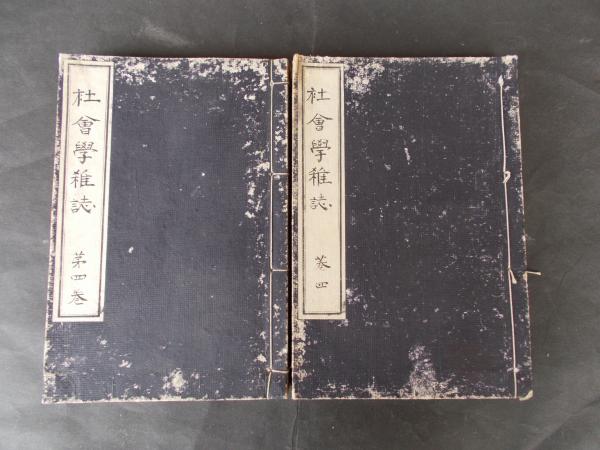 社會學雜誌
第四巻
社會學雜誌
巻四